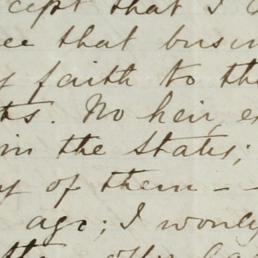 cept that I
ee that busin
y faith to th
ts. No heir, e
in the States;
y of them –
ago; I wonly
the